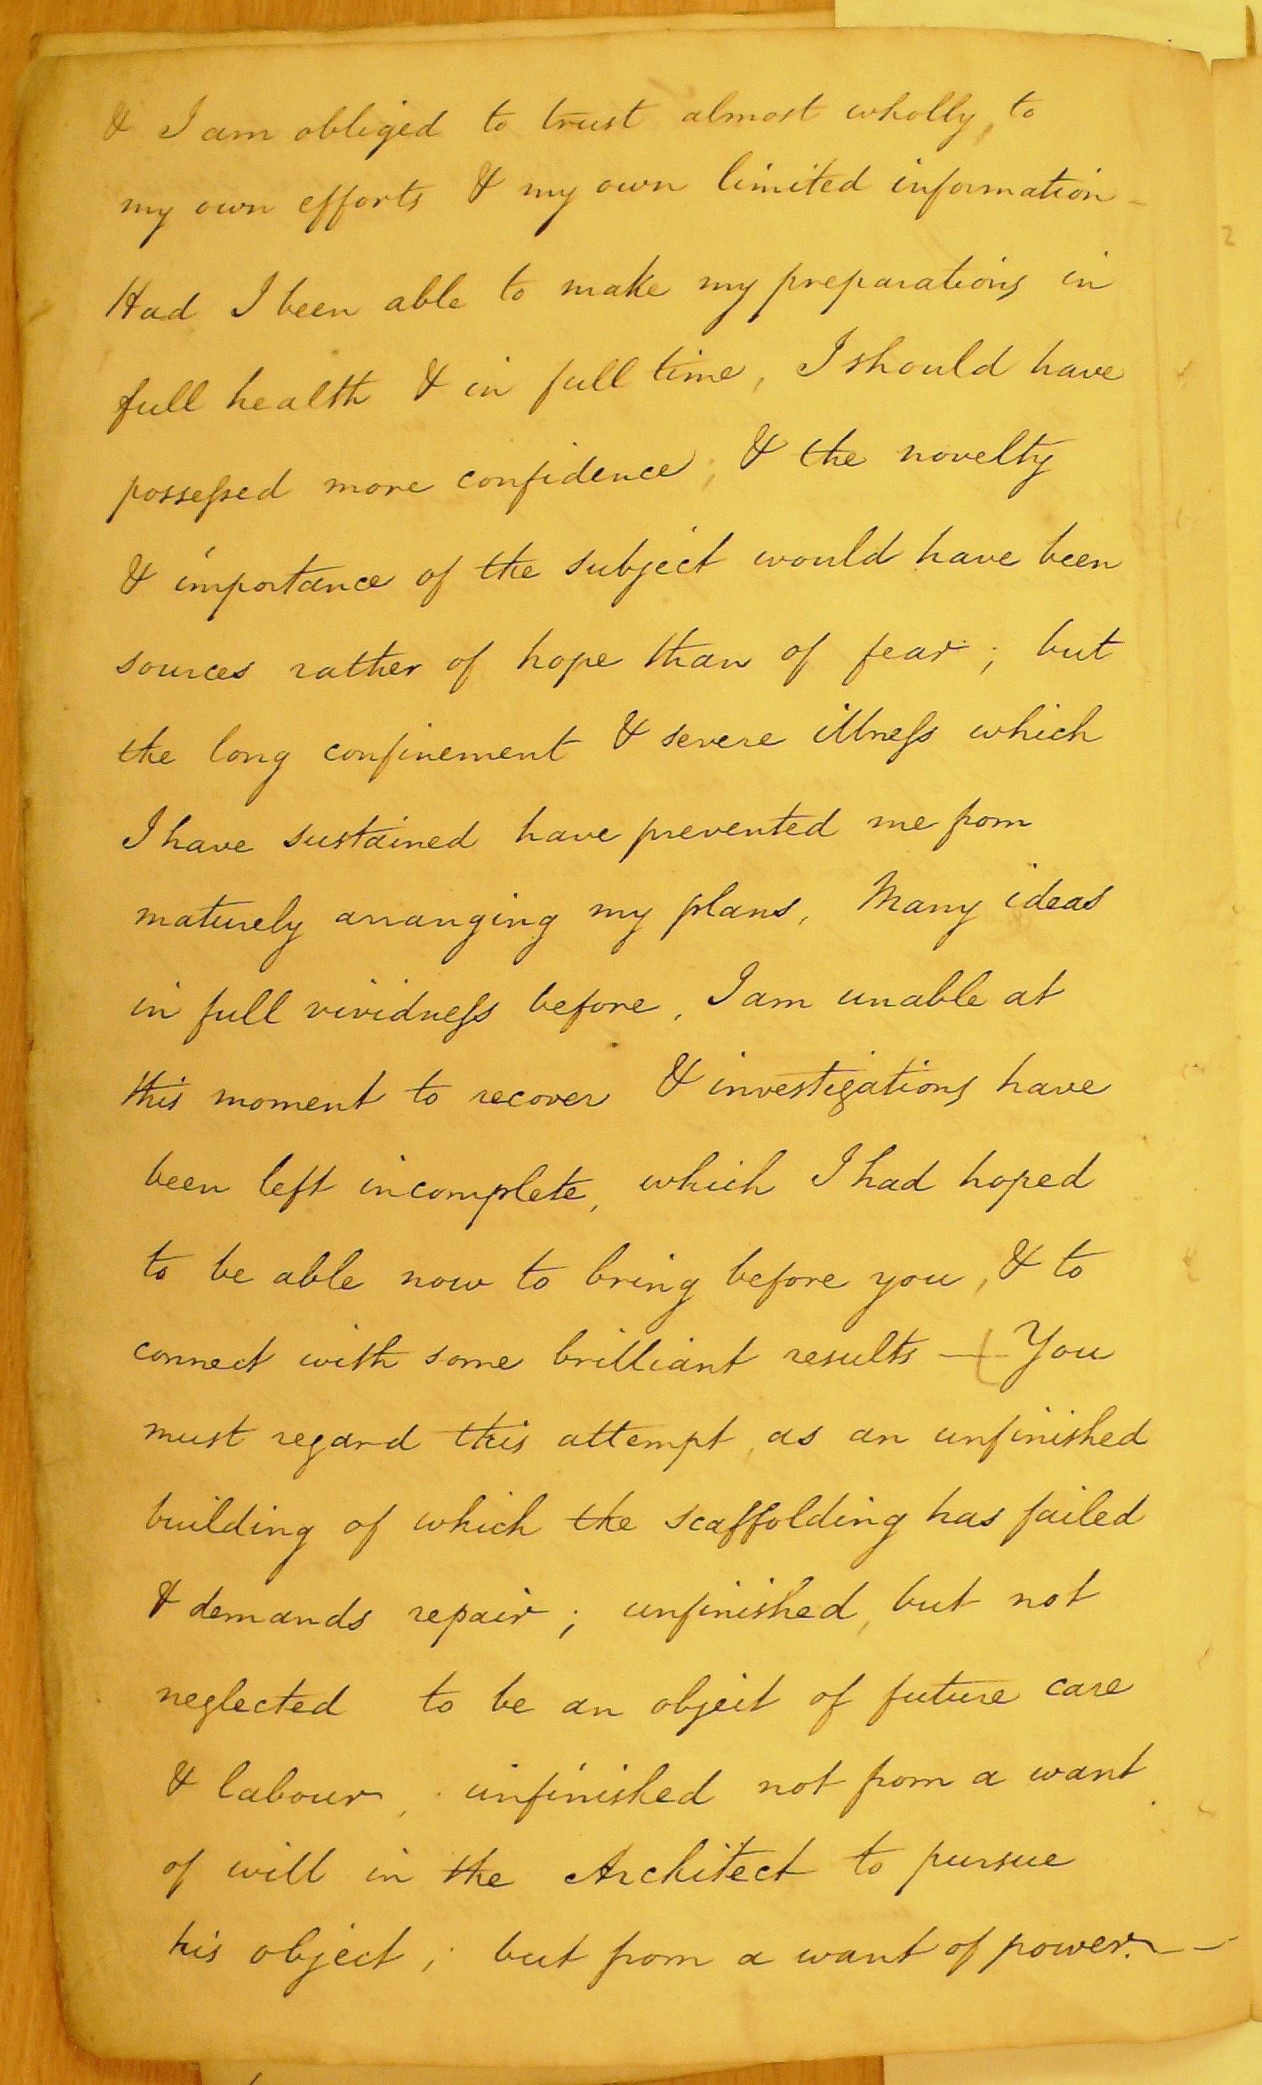 & I am obliged to trust almost wholly, to
my own efforts & my own limited information -
Had I been able to make my preparations in
full health & in full time, I should have
possessed more confidence, & the novelty
& importance of the subject would have been
sources rather of hope than of fear; but
the long confinement & severe illness which
I have sustained have prevented me from
maturely arranging my plans, Many ideas
in full vividness before, I am unable at
this moment to recover & investigations have
been left incomplete, which I had hoped
to be able now to bring before you, & to
connect with some brilliant results — You
must regard this attempt, as an unfinished
building of which the scaffolding has failed
& demands repair; unfinished, but not
neglected to be an object of future care
& labour, unfinished not from a want
of will in the Architect to pursue
his object; but from a want of power. —